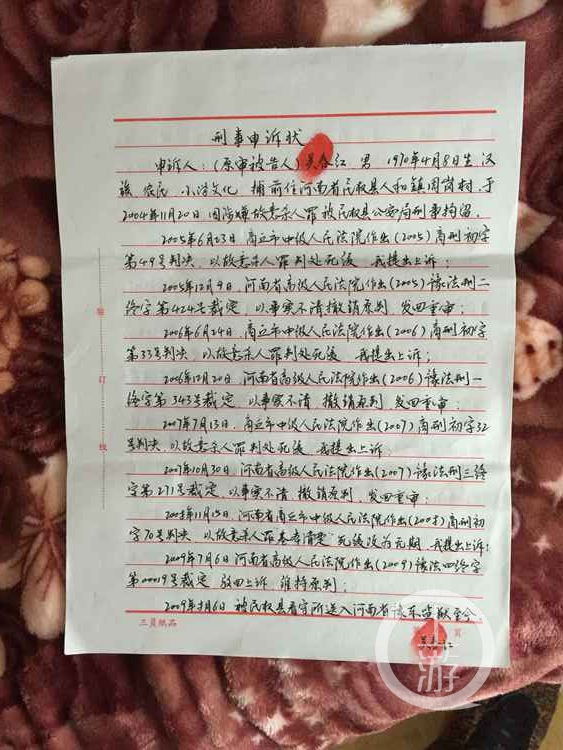 刑事申诉状
申诉人:(原审被告人)吴春红,男 1970年4月8日生,汉
族 农民 小学文化 捕前住河南省民权县人和镇周岗村,于
2004年11月20日因涉嫌故意杀人罪被民权县公安局刑事拘留,
2005年6月23日,商丘市中级人民法院作出(2005)商刑初字
第49号判决,以故意杀人罪判处死缓 我提出上诉;
2005年12月9日,河南省高级人民法院作出(2005)豫法刑二
终字第424号裁定,以事实不清撤销原判,发回重审;
2006年6月24日,商丘市中级人民法院作出(2006)商刑初字
第33号判决,以故意杀人罪判处死缓 我提出上诉;
2006年12月20日,河南省高级人民法院作出(2006)豫法刑一
终字第343号裁定,以事实不清 撤销原判,发回重审;
2007年7月13日,商丘市中级人民法院作出(2007)商刑初字32
号判决,以故意杀人罪判处死缓,我提出上诉
2007年10月30日,河南省高级人民法院作出(2007)豫法刑三终
字第271号裁定,以事实不清 撤销原判,发回重审;
2008年11月15日,河南省商丘市中级人民法院作出(2008)商刑初
字70号判决,以故意杀人罪 死缓改为无期,我提出上诉;
2009年7月6日河南省高级人民法院作出(2009)豫法四终字
第00019号裁定 驳回上诉,维持原判;
2009年8月6日 被民权县看守所送入河南省豫东监狱至今
装
订
线
三员纸品
页
吴春红
上游